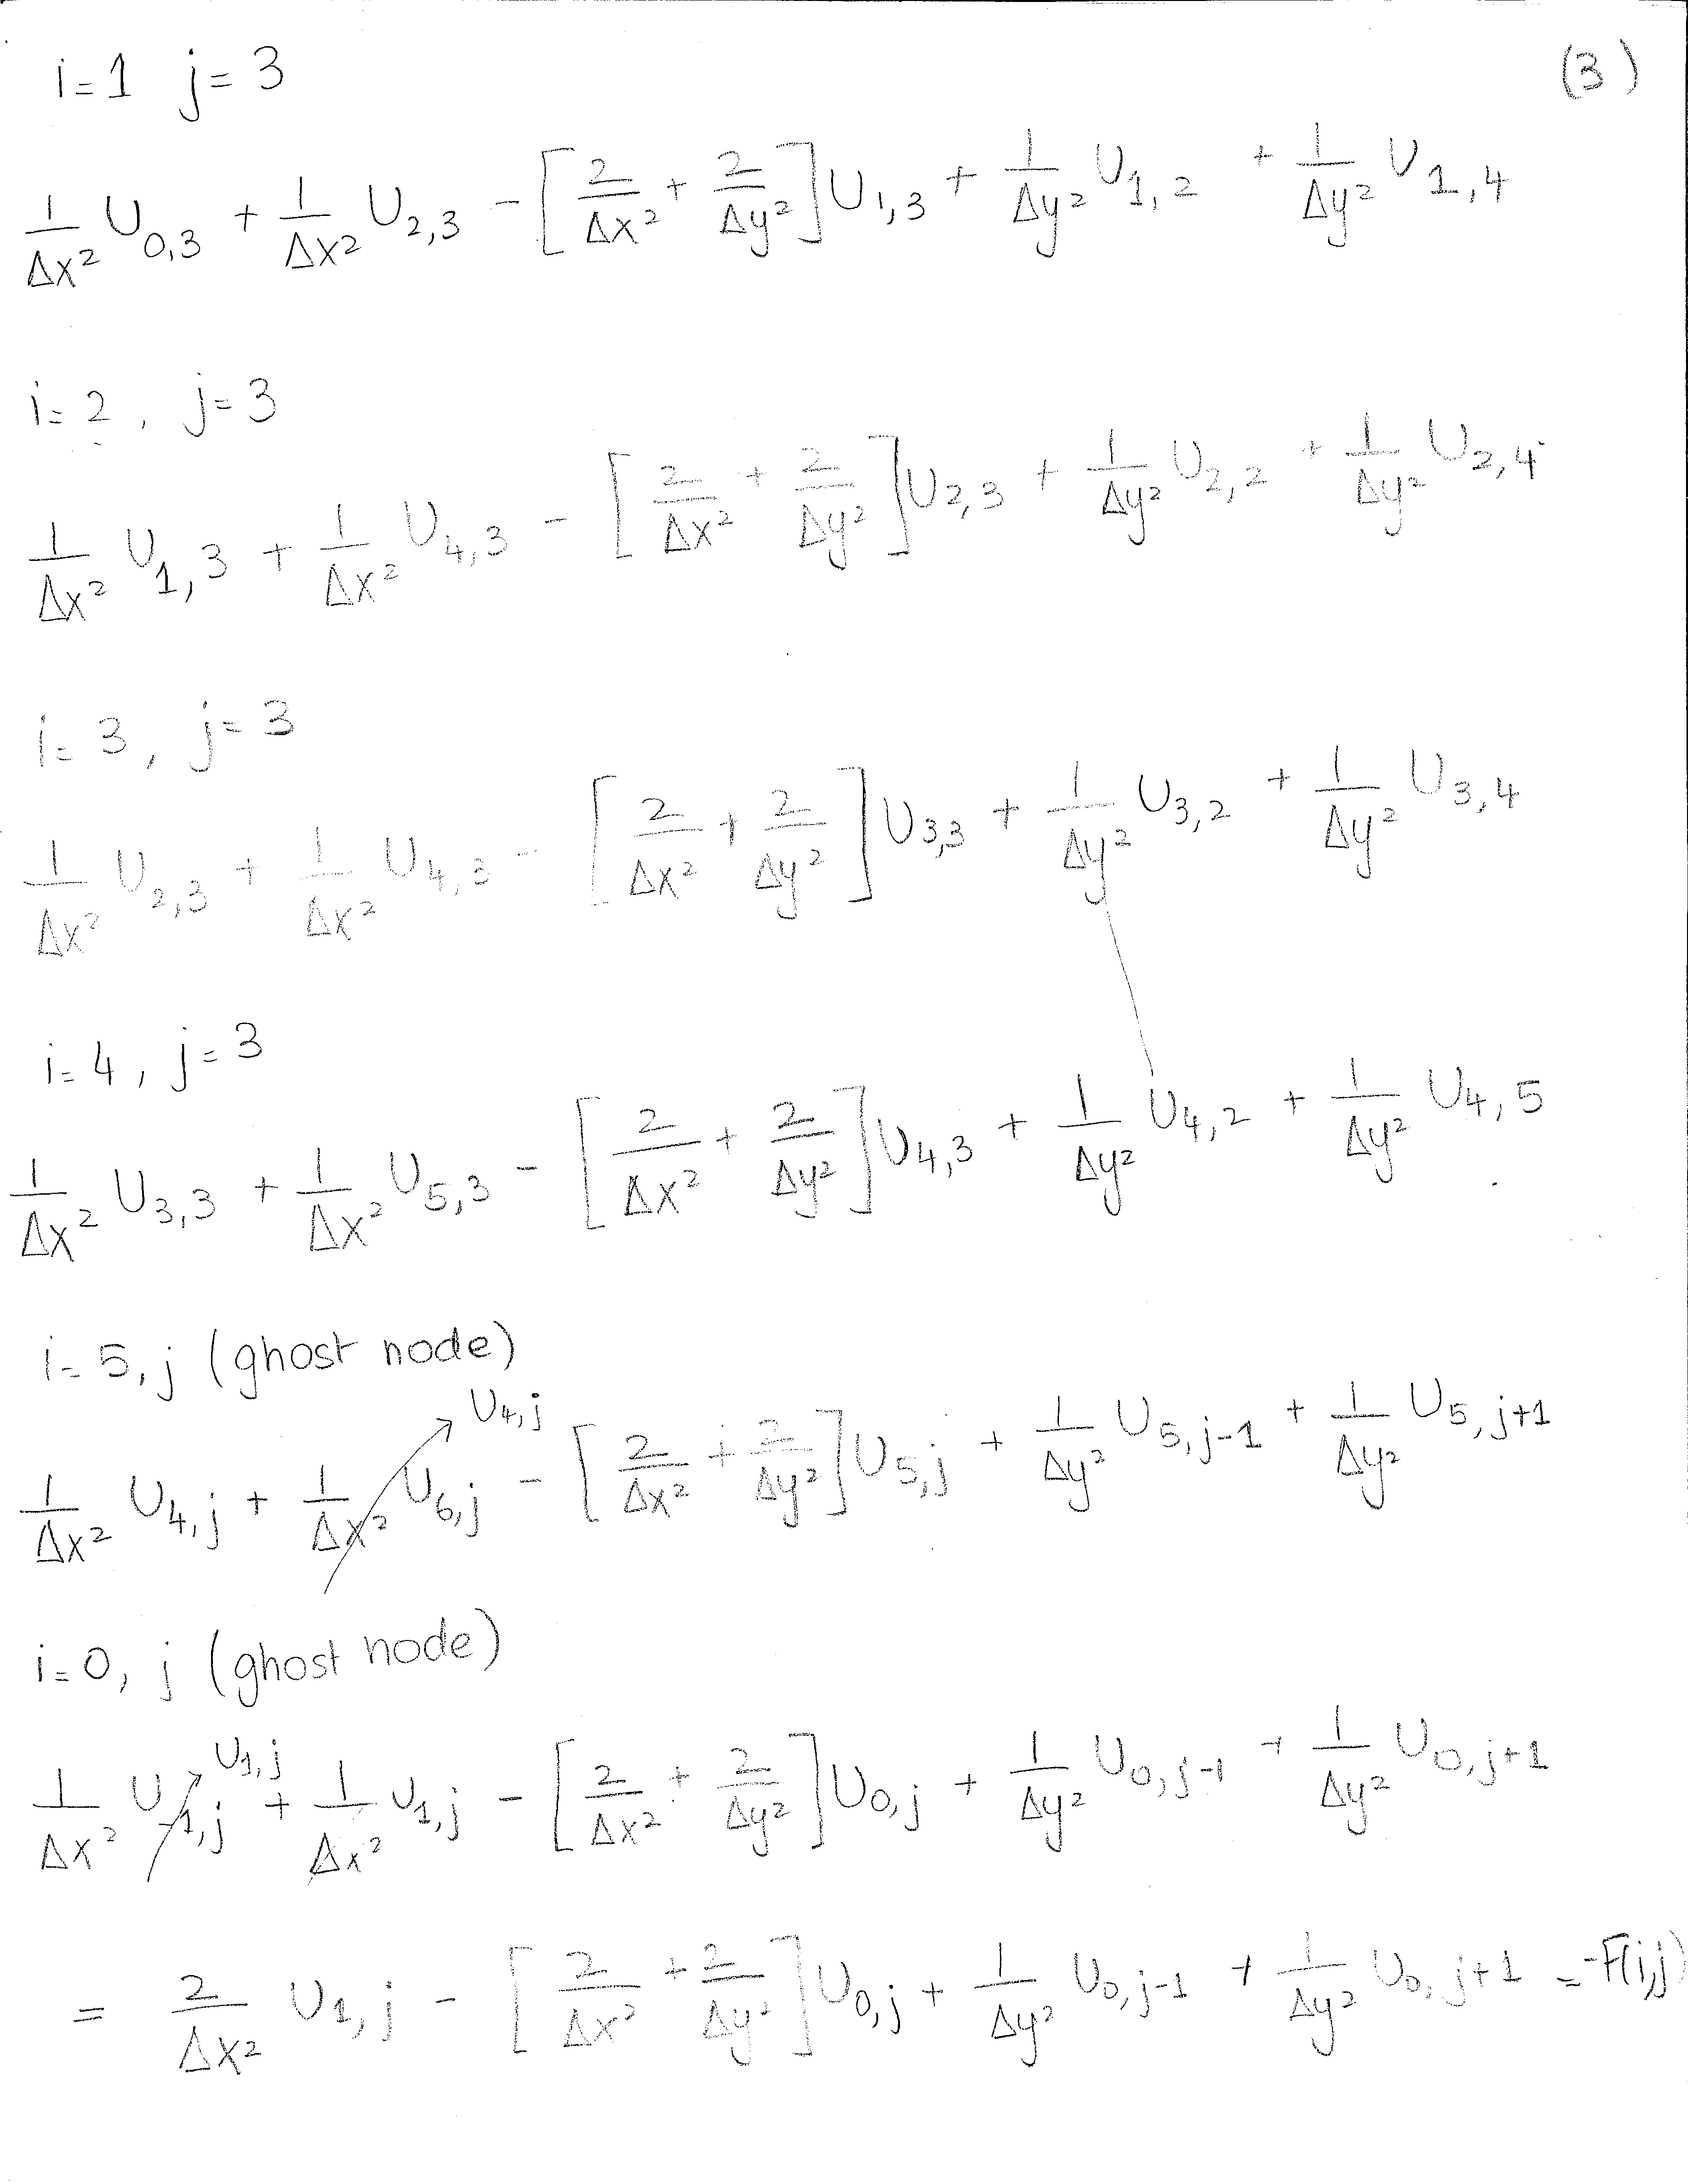 i=1 j=3 (3)
1/Δx² U0,3 + 1/Δx² U2,3 - [2/Δx² + 2/Δy²] U1,3 + 1/Δy² U1,2 + 1/Δy² U1,4
i=2, j=3
1/Δx² U1,3 + 1/Δx² U4,3 - [2/Δx² + 2/Δy²] U2,3 + 1/Δy² U2,2 + 1/Δy² U2,4
i=3, j=3
1/Δx² U2,3 + 1/Δx² U4,3 - [2/Δx² + 2/Δy²] U3,3 + 1/Δy² U3,2 + 1/Δy² U3,4
i=4, j=3
1/Δx² U3,3 + 1/Δx² U5,3 - [2/Δx² + 2/Δy²] U4,3 + 1/Δy² U4,2 + 1/Δy² U4,5
i=5, j (ghost node)
U4,j
1/Δx² U4,j + 1/Δx² U6,j - [2/Δx² + 2/Δy²] U5,j + 1/Δy² U5,j-1 + 1/Δy² U5,j+1
i=0, j (ghost node)
U1,j
1/Δx² U-1,j + 1/Δx² U1,j - [2/Δx² + 2/Δy²] U0,j + 1/Δy² U0,j-1 + 1/Δy² U0,j+1
= 2/Δx² U1,j - [2/Δx² + 2/Δy²] U0,j + 1/Δy² U0,j-1 + 1/Δy² U0,j+1 = -F(i,j)